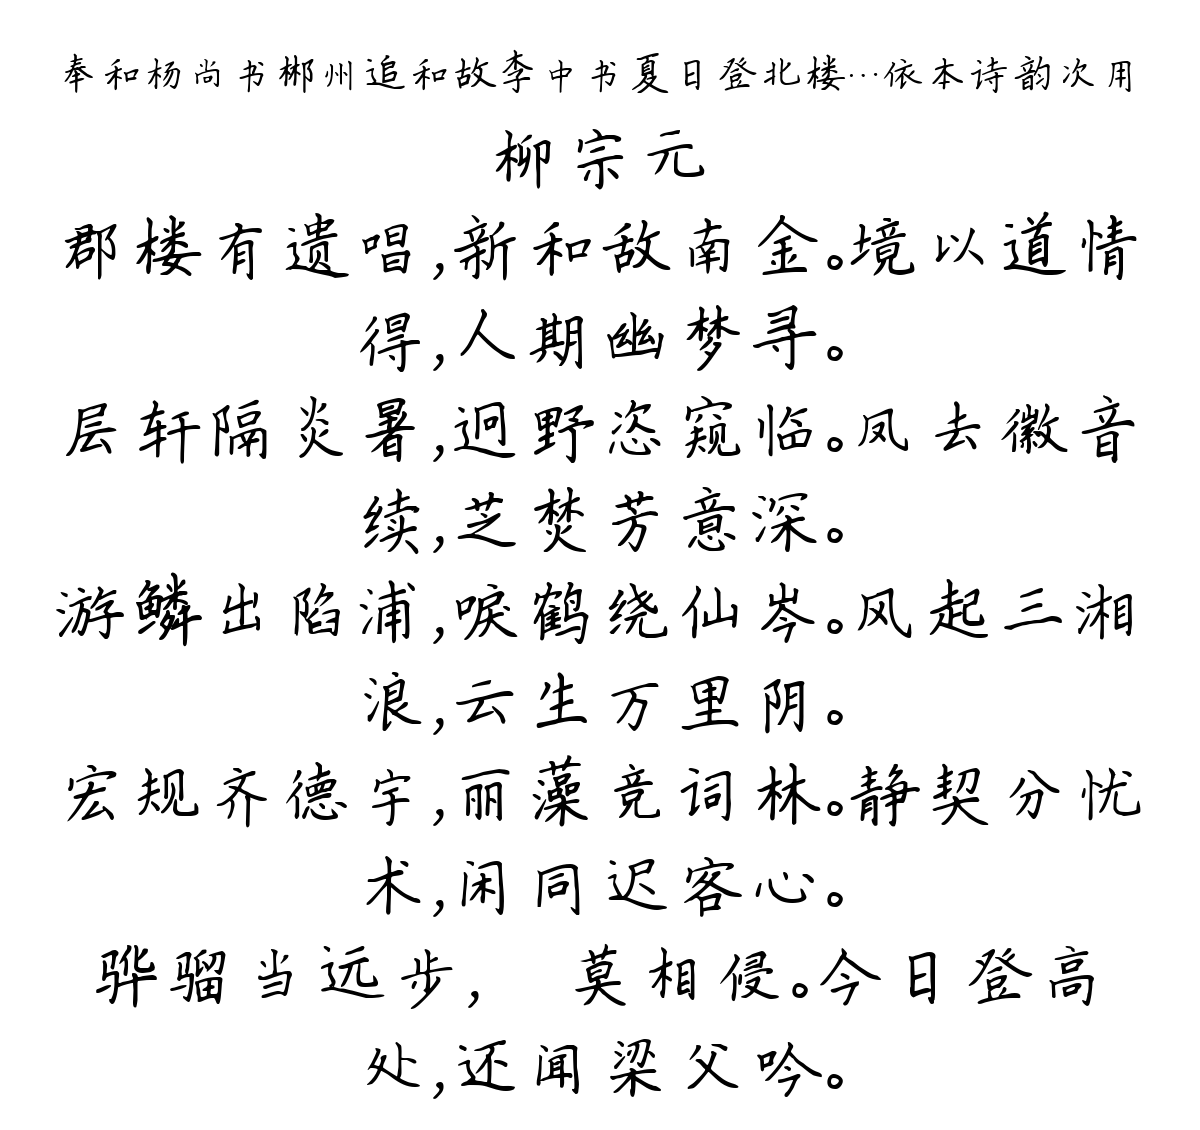 奉和杨尚书郴州追和故李中书夏日登北楼…依本诗韵次用
柳宗元
郡楼有遗唱,新和敌南金。境以道情
得,人期幽梦寻。
层轩隔炎暑,迥野恣窥临。凤去徽音
续,芝焚芳意深。
游鳞出陷浦,唳鹤绕仙岑。风起三湘
浪,云生万里阴。
宏规齐德宇,丽藻竞词林。静契分忧
术,闲同迟客心。
骅骝当远步, 莫相侵。今日登高
处,还闻梁父吟。